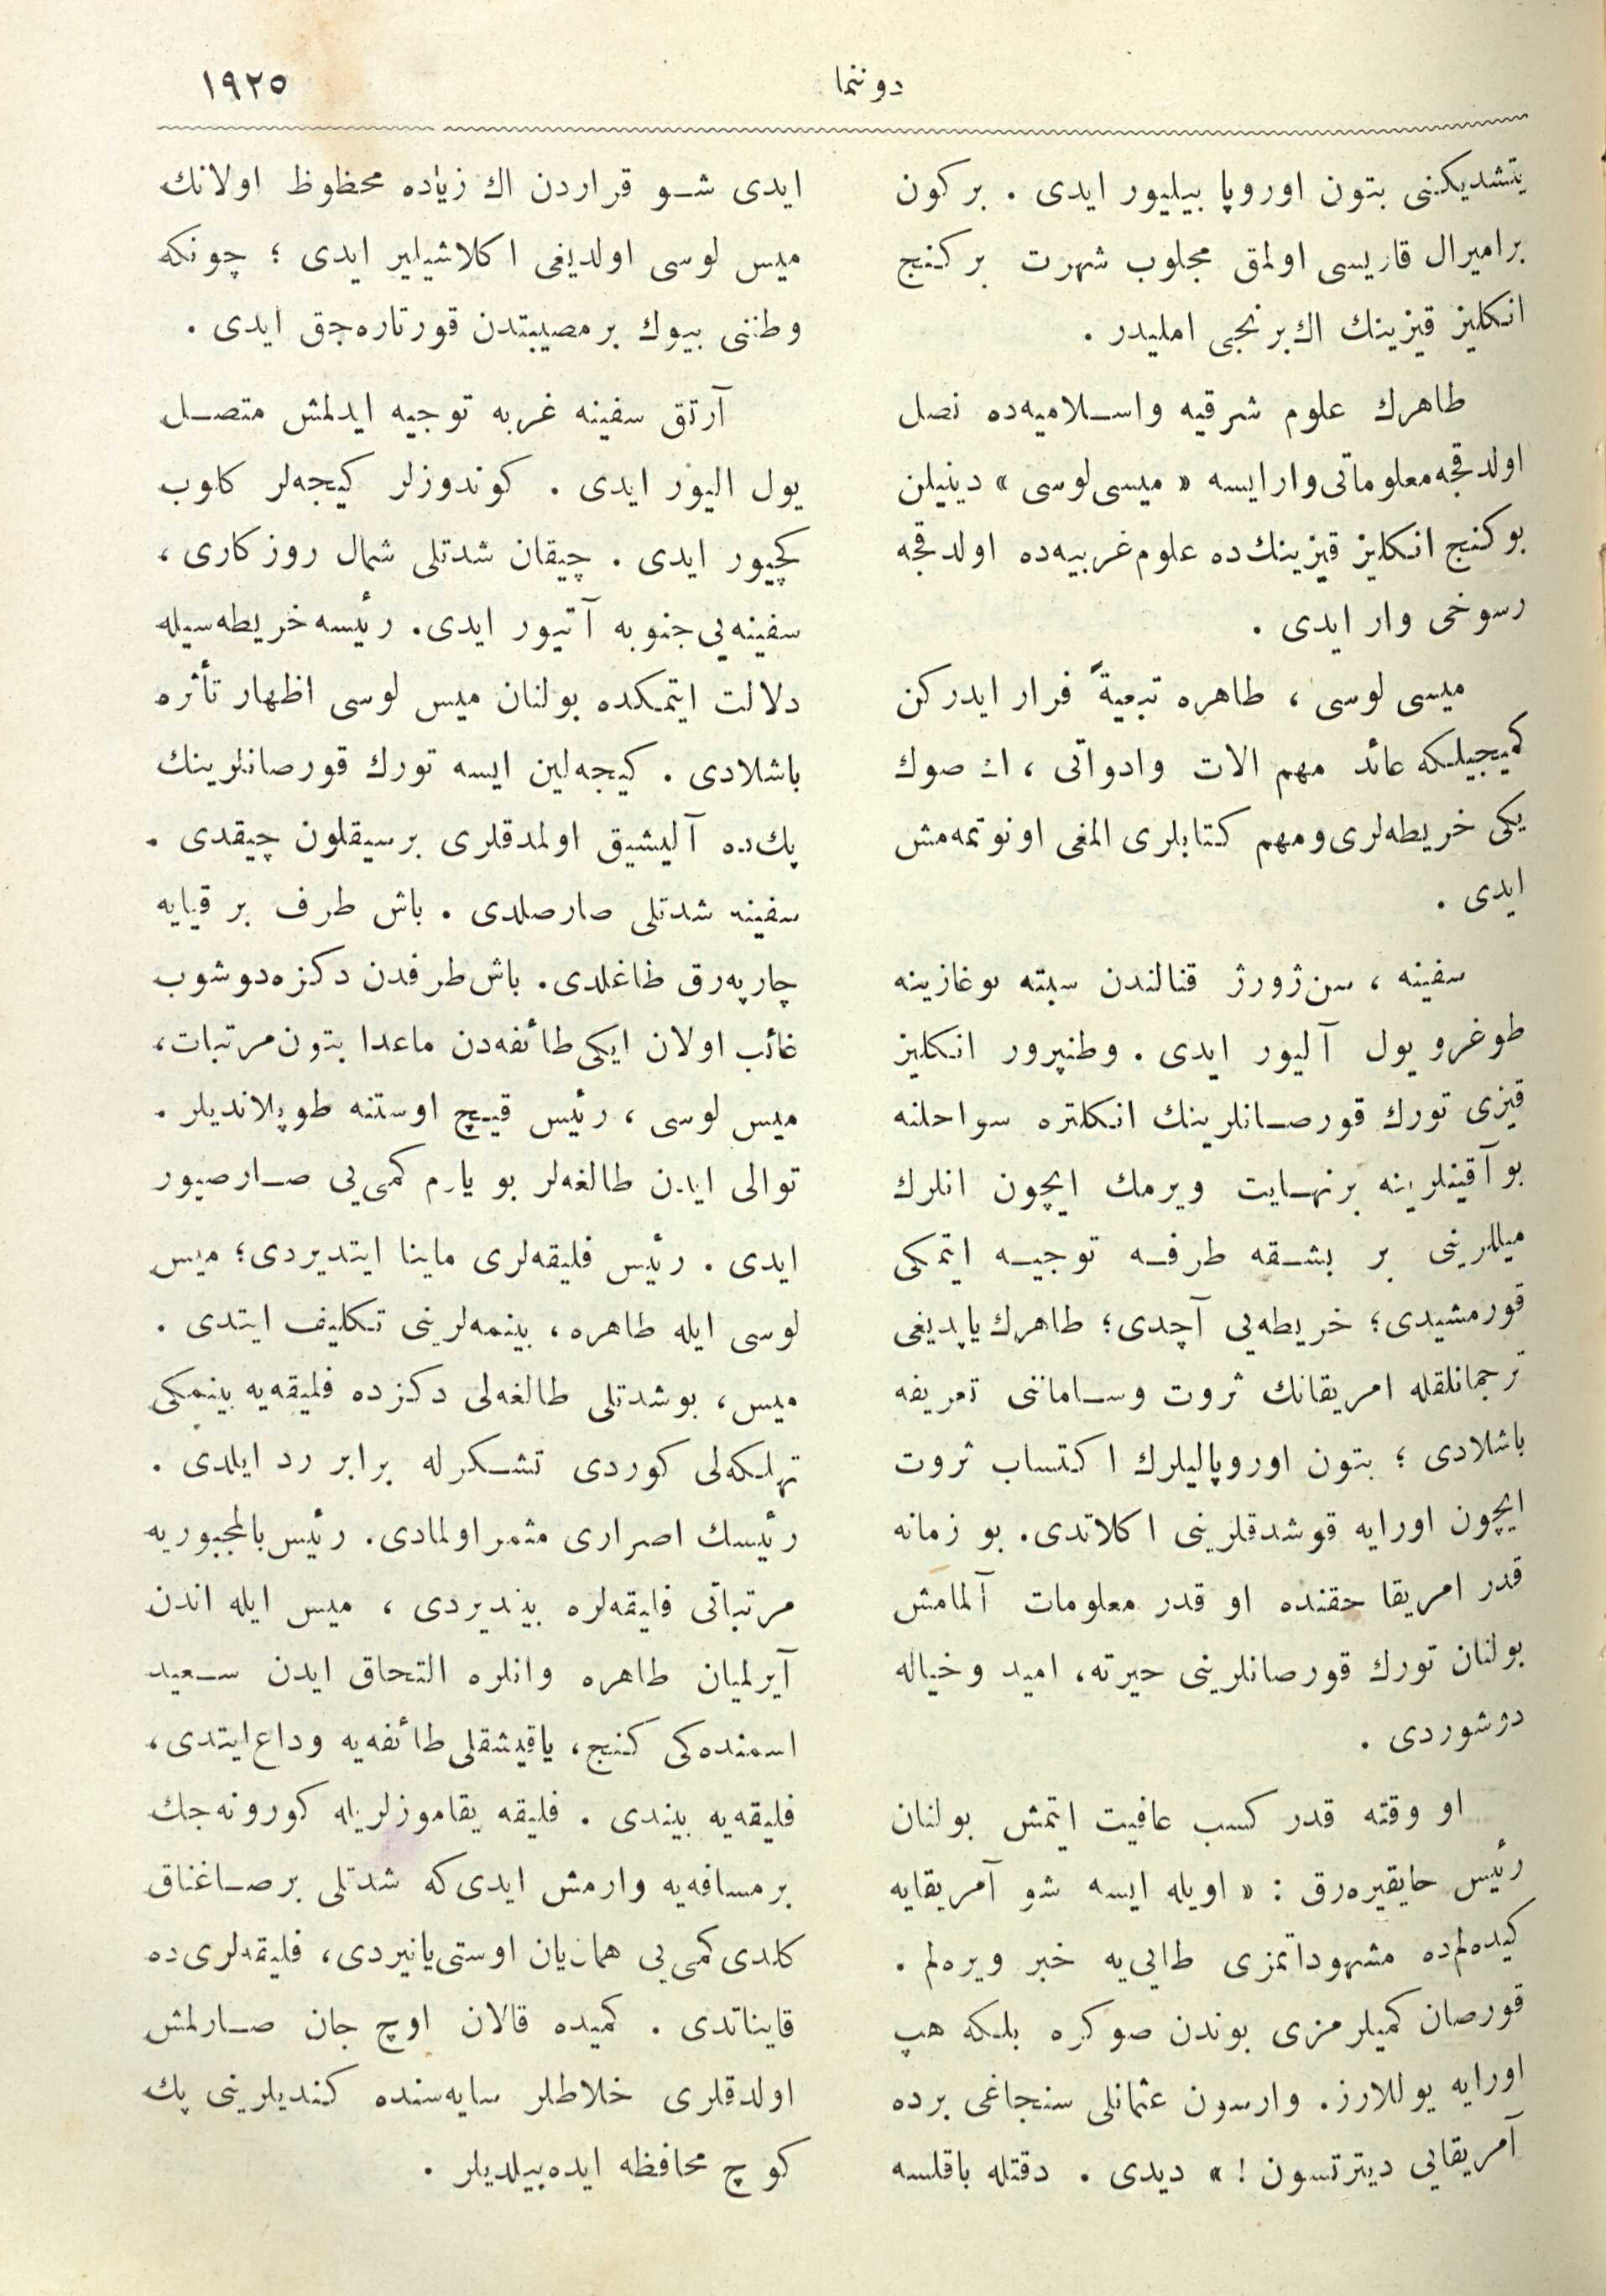 دوننما
١٩٢٥
يتشديكنى بتون اوروپا بيليور ايدى . بر كون
بر اميرال قاريسى اولمق مجلوب شهرت بر كنج
انكليز قيزينك اك برنجى امليدر .
طاهرك علوم شرقيه واسلاميه‌ده نصل
اولدقجه معلوماتى وار ايسه « ميسى لوسى » دينيلن
بو كنج انكليز قيزينك ده علوم غربيه‌ده اولدقجه
رسوخى وار ايدى .
ميسى لوسى ، طاهره تبعيةً فرار ايدركن
كميجيلكه عائد مهم الات وادواتى ، اك صوك
يكى خريطه‌لرى ومهم كتابلرى المغى اونوتمه‌مش
ايدى .
سفينه ، سن ژورژ قنالندن سبته بوغازينه
طوغرو يول آليور ايدى . وطنپرور انكليز
قيزى تورك قورصانلرينك انكلتره سواحلنه
بو آقينلرينه برنهايت ويرمك ايچون انلرك
ميللرينى بر بشقه طرفه توجيه ايتمكى
قورمشيدى؛ خريطه‌يى آچدى؛ طاهرك ياپديغى
ترجمانلقله امريقانك ثروت وساماننى تعريفه
باشلادى ؛ بتون اوروپاليلرك اكتساب ثروت
ايچون اورايه قوشدقلرينى اكلاتدى. بو زمانه
قدر امريقا حقنده او قدر معلومات آلمامش
بولنان تورك قورصانلرينى حيرته، اميد وخياله
دوشوردى .
او وقته قدر كسب عافيت ايتمش بولنان
رئيس حايقيره‌رق : « اويله ايسه شو آمريقايه
كيده‌لم‌ده مشهوداتمزى طايى‌يه خبر ويره‌لم .
قورصان كميلرمزى بوندن صوكره بلكه هپ
اورايه يوللارز. وارسون عثمانلى سنجاغى برده
آمريقايى ديترتسون ! » ديدى . دقتله باقلسه
ايدى شو قراردن اك زياده محظوظ اولانك
ميس لوسى اولديغى اكلاشيلير ايدى ؛ چونكه
وطننى بيوك بر مصيبتدن قورتاره‌جق ايدى .
آرتق سفينه غربه توجيه ايدلمش متصل
يول اليور ايدى . كوندوزلر كيجه‌لر كلوب
كچيور ايدى . چيقان شدتلى شمال روزكارى ،
سفينه‌يى جنوبه آتيور ايدى. رئيسه خريطه سيله
دلالت ايتمكده بولنان ميس لوسى اظهار تأثره
باشلادى . كيجه‌لين ايسه تورك قورصانلرينك
پك‌ده آليشيق اولمدقلرى بر سيقلون چيقدى .
سفينه شدتلى صارصلدى . باش طرف بر قيايه
چارپه‌رق طاغلدى. باش طرفدن دكزه دوشوب
غائب اولان ايكى طائفه‌دن ماعدا بتون مرتبات،
ميس لوسى ، رئيس قيچ اوستنه طوپلانديلر .
توالى ايدن طالغه‌لر بو يارم كمى‌يى صارصيور
ايدى . رئيس فليقه‌لرى ماينا ايتديردى؛ ميس
لوسى ايله طاهره، بينمه‌لرينى تكليف ايتدى .
ميس، بو شدتلى طالغه‌لى دكزده فليقه‌يه بينمكى
تهلكه‌لى كوردى تشكرله برابر رد ايلدى .
رئيسك اصرارى مثمر اولمادى. رئيس بالمجبوريه
مرتباتى فليقه‌لره بينديردى ، ميس ايله اندن
آيرلميان طاهره وانلره التحاق ايدن سعيد
اسمنده‌كى كنج، ياقيشقلى طائفه‌يه وداع ايتدى،
فليقه‌يه بيندى . فليقه يقاموزلريله كورونه‌جك
بر مسافه‌يه وارمش ايدى كه شدتلى بر صاغناق
كلدى كمى‌يى همان يان اوستى يانيردى، فليقه‌لرى ده
قايناتدى . كميده قالان اوچ جان صارلمش
اولدقلرى خلاطلر سايه‌سنده كنديلرينى پك
كوچ محافظه ايده‌بيلديلر .